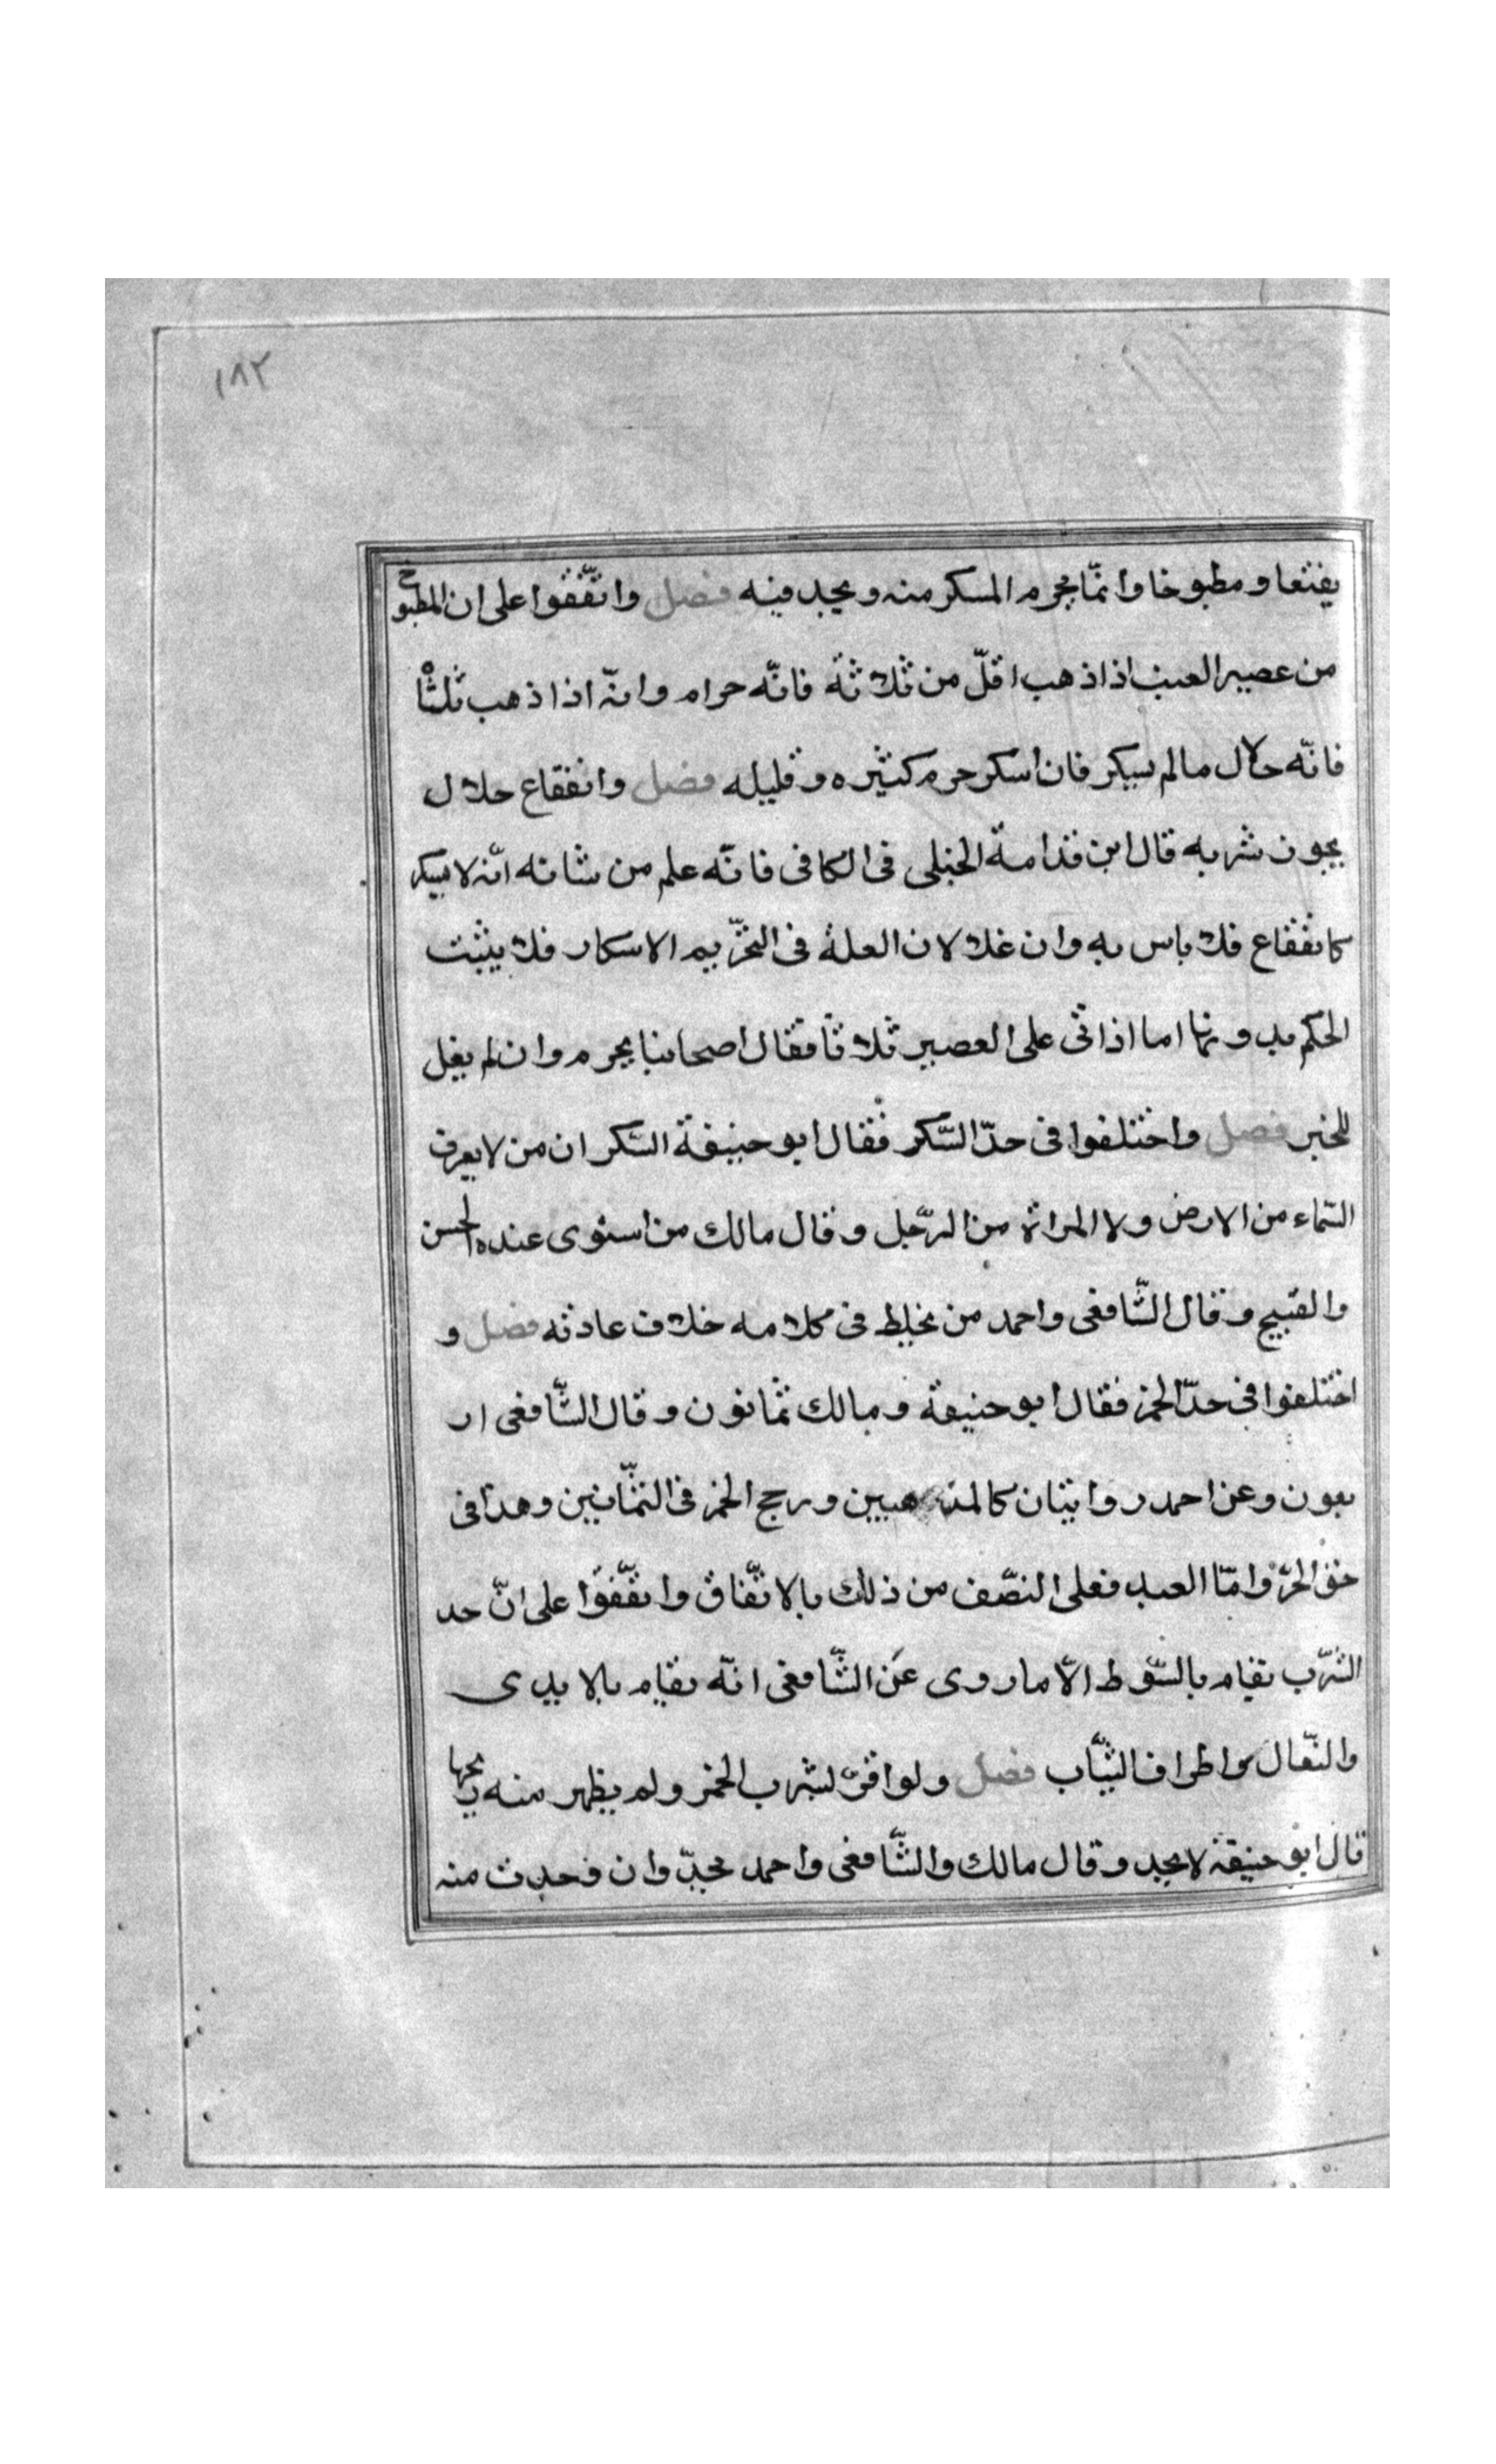 ١٨٢
يفتعا و مطبوخا وانمّا يحرم المسكر منه و يجد فيه فصل واتّفقوا على ان المطبوخ
من عصير العنب اذا ذهب اقلّ من ثلاثة فانّه حرام وانّه اذا ذهب ثلثا
فانّه حلال مالم يسكر فان اسكر حرم كثيره و قليله فصل وانفقاع حلال
يجون شربه قال ابن قدامة الحنبلى فى الكافى فانّه علم من شانه انّه لا يسكر
كانفقاع فلا باس به وان غلا لان العلة فى التحّريم الاسكار فلا يثبت
الحكم بدونها اما اذا اتى على العصير ثلاثا فقال اصحابنا يحرم وان لم يغل
للخبر فصل واختلفوا فى حدّ السّكر فقال ابو حنيفة السّكران من لا يعرف
السّماء من الارض ولا المراة من الرّجل وقال مالك من استوى عنده الحسن
والقبيح وقال الشّافعى واحمد من يخلط فى كلامه خلاف عادته فصل و
اختلفوا فى حدّ الخمر فقال ابو حنيفة ومالك ثمانون وقال الشّافعى ار
بعون وعن احمد روايتان كالمذهبين ورجح الخمر فى الثمّانين وهذا فى
حق الحرّ وامّا العبد فعلى النصّف من ذلك بالاتّفاق واتّفقوا على انّ حد
الشرّب يقام بالسّوط الاّ ماروى عن الشّافعى انّه يقام بالايدى
والنّعال واطراف الثيّاب فصل ولو اقرّ لشرب الخمر ولم يظهر منه ريحها
قال ابو حنيفة لا يجد وقال مالك والشّافعى واحمد يجدّ وان فحدث منه